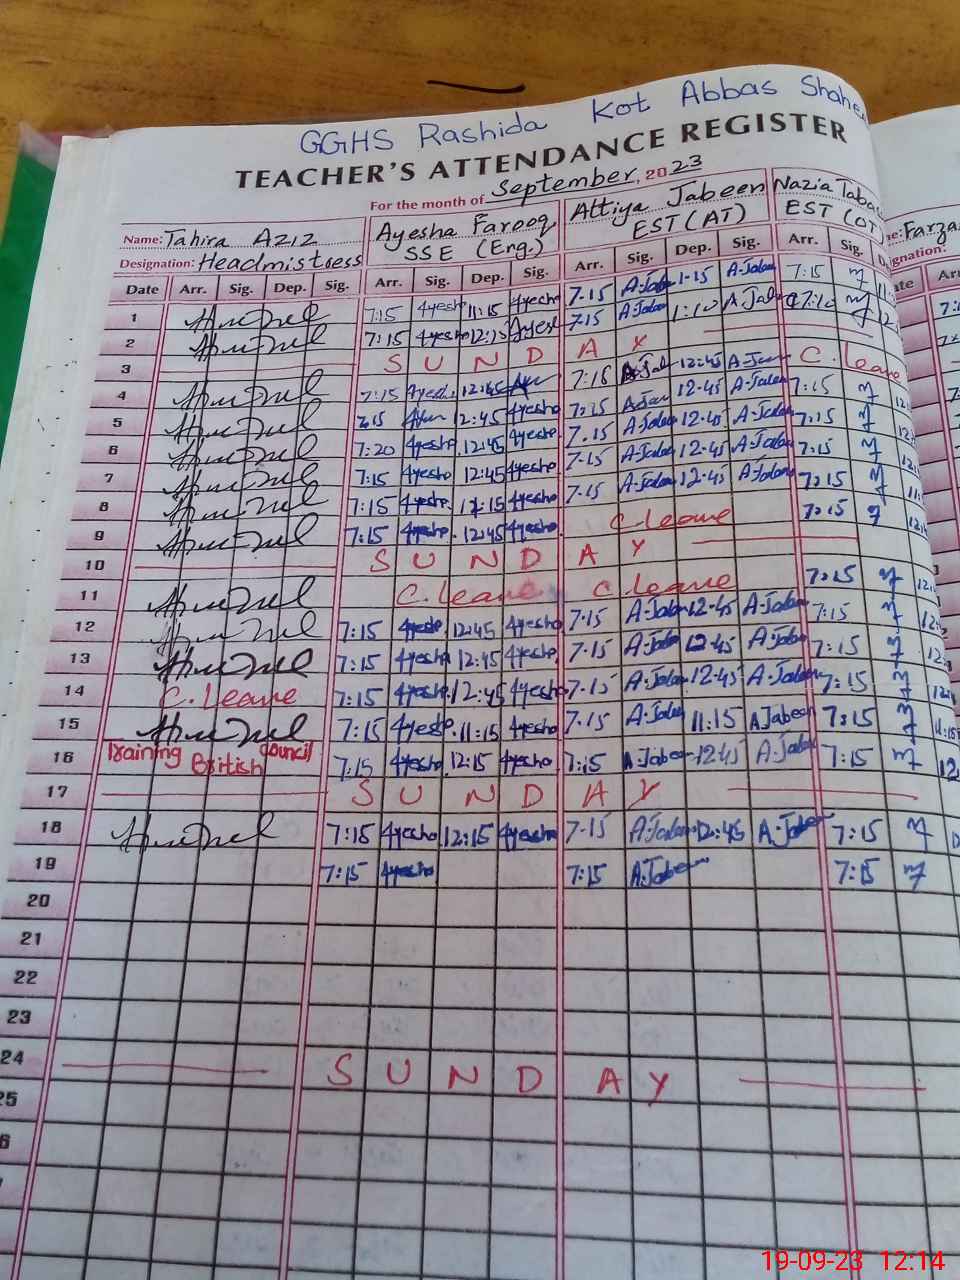 GGHS Rashida Kot Abbas Shahe
TEACHER'S ATTENDANCE REGISTER
For the month of September, 2023
Name: Tahira Aziz Ayesha Farooq Attiya Jabeen Nazia Tabas
Designation: Headmistress SSE (Eng.) EST (AT) EST (OT)
me: Farza
gnation:
Date Arr. Sig. Dep. Sig. Arr. Sig. Dep. Sig. Arr. Sig. Dep. Sig. Arr. Sig. D ate Arr
1 7:15 Ayesha 11:15 Ayesha 7-15 A.Jabeen 1-15 A.Jabeen 7:15
2 7:15 Ayesha 7-15 A.Jabeen 1:10 A.Jab 7:10
3 SUNDAY
4 7:15 7:15 A.Jab 12:45 C. leave
5 7:15 12:45 Ayesha 7:15 12-45 A.Jabeen 7:15
6 7:20 Ayesha 12:45 Ayesha 7.15 A.Jabeen 12-45 A.Jabeen 7:15
7 7:15 Ayesha 12:45 Ayesha 7-15 A.Jabeen 12-45 A.Jabeen 7:15
8 7:15 Ayesha Ayesha 7-15 A.Jabeen 12-45 A.Jabeen 7:15
9 7:15 Ayesha 12:45 Ayesha C.leave 7:15
10 SUNDAY
11 C.leave C.leave 7:15
12 7:15 Ayesha 12:45 Ayesha 7-15 A.Jabeen 12-45 A.Jabeen 7:15
13 7:15 Ayesha 12:45 Ayesha 7-15 A.Jabeen 12-45 A.Jabeen 7:15
14 C.Leave 7:15 Ayesha 12:45 Ayesha 7-15 A.Jabeen 12-45 A.Jabeen 7:15
15 7:15 Ayesha 11:15 Ayesha 7-15 A.Jabeen 11:15 A Jabeen 7:15 11:15
16 Training British Council 7:15 Ayesha 12:15 Ayesha 7:15 A.Jabeen 12-45 A.Jabeen 7:15 12
17 SUNDAY
18 7:15 Ayesha 12:15 Ayesha 7-15 A.Jabeen 12:45 A.Jabeen 7:15
19 7:15 Ayesha 7:15 A.Jabeen 7:15
20
21
22
23
24 SUNDAY
25
6
19-09-23 12:14